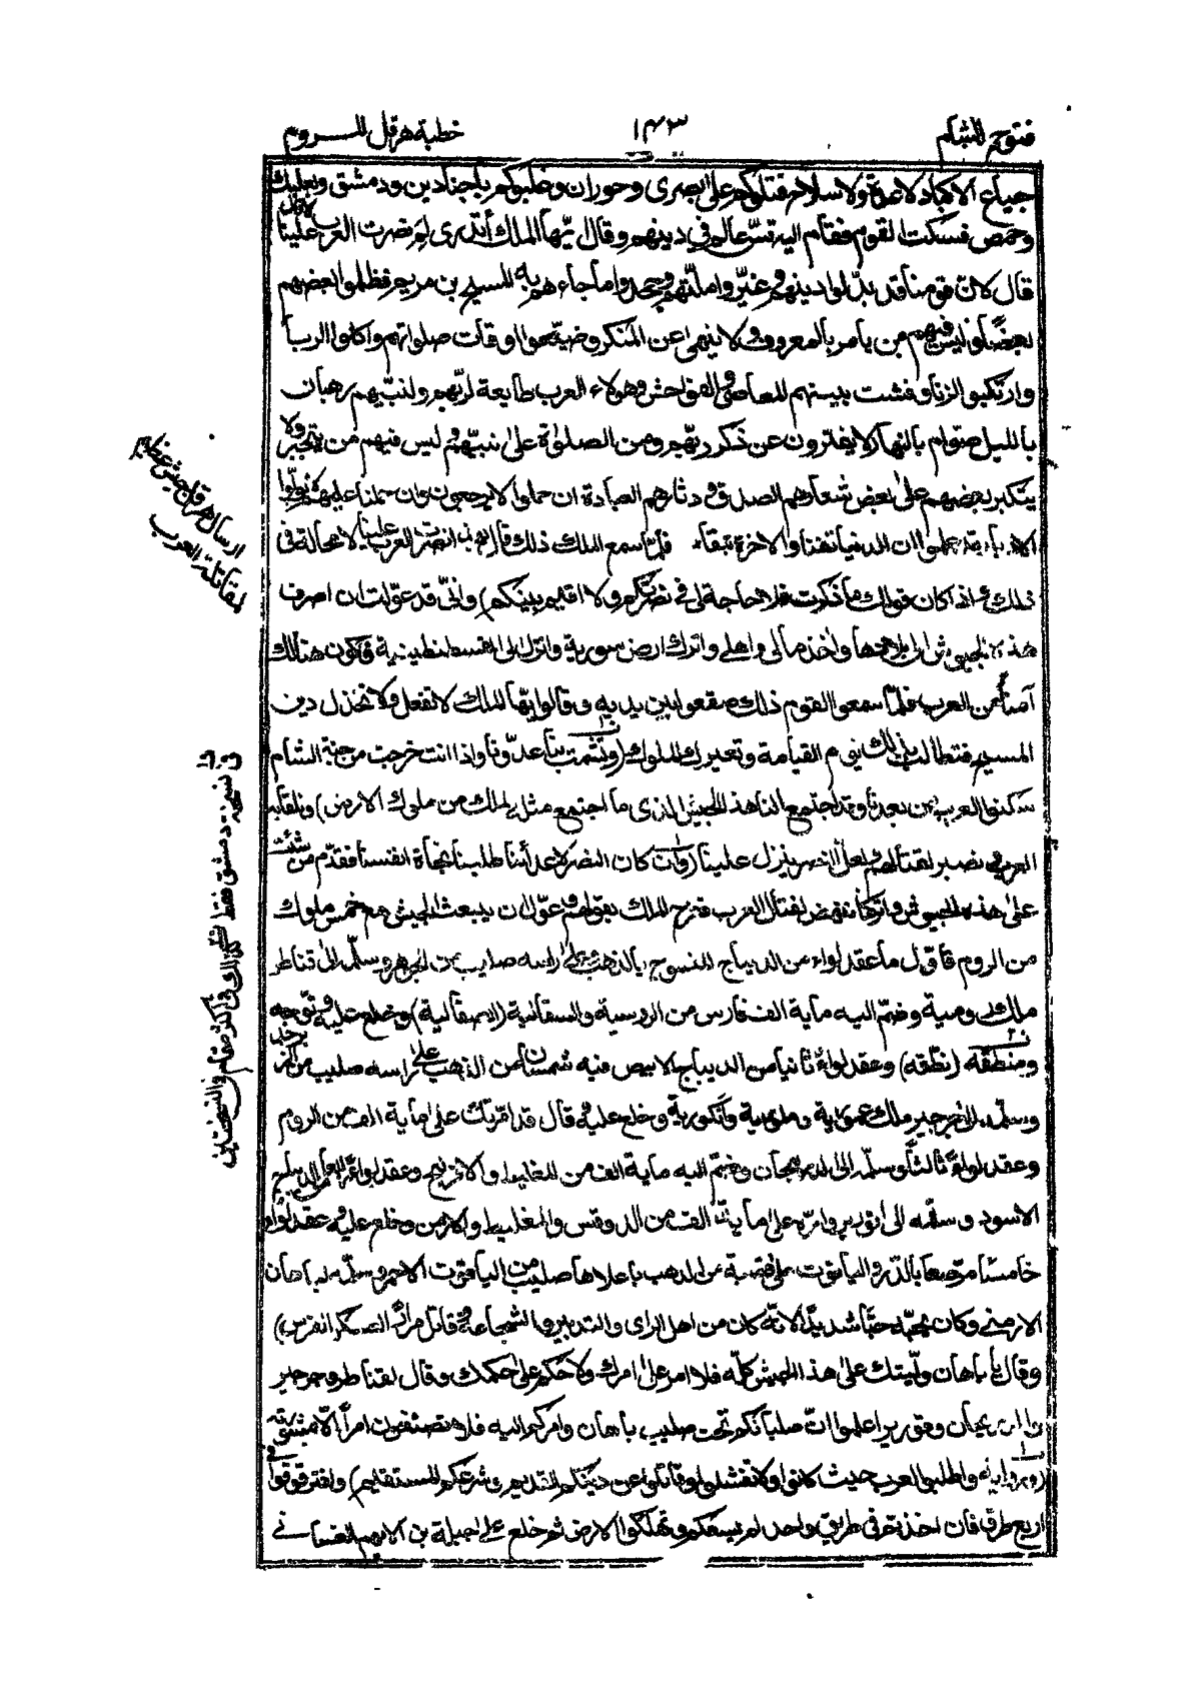 فتوح الشام
١٤٣
خطبة هرقل للروم
جياع الاكباد لا عدة ولا سلاح فقتلوكم على بصرى وحوران وغلبوكم باجنادين ودمشق وبعلبك
وحمص فسكت القوم فقام اليه قسّ عالم في دينهم وقال ايّها الملك أتدرى لِمَ نصرت العرب علينا
قال لا
قال لانّ قومنا قد بدّلوا دينهم وغيّروا ملّتهم وجحدوا ما جاءهم به المسيح بن مريم وظلموا بعضهم
بعضًا وليس فيهم من يأمر بالمعروف ولا ينهى عن المنكر وضيّعوا اوقات صلواتهم واكلوا الربا
وارتكبوا الزنا وفشت بينهم المعاصى والفواحش وهولاء العرب طايعة لربّهم ولنبّيهم رهبان
بالليل صوّام بالنهار لا يفترون عن ذكر ربّهم ومن الصلوٰة على نبيّهم وليس فيهم من يتجبر ولا
يتكبر بعضهم على بعض شعارهم الصدق ودثارهم العبادة ان حملوا لا يرجعون وان حملنا عليهم لا يولّوا
الادبار قد علموا ان الدنيا تفنا والاخرة تبقاء فلمّا سمع الملك ذلك قال بهذا نصرت العرب علينا لا محالة في
ذلك واذا كان قولك ما ذكرت فلا حاجة لى في نصرتكم (ولا اقيم بينكم) وانّى قد عوّلت ان اصرف
هذه الجيوش الى بلادها وآخذ مالى واهلى واترك ارض سورية وانزل الى القسطنطينية فاكون هنالك
آمنًا من العرب فلمّا سمعوا القوم ذلك صقعوا بين يديه وقالوا ايّها الملك لا تفعل ولا تخذل دين
المسيح فتطالبك بذلك يوم القيامة وتعيرك الملوك (ويشمت بنا عدّونا واذا انت خرجت من جنة الشام
سكنوا العرب من بعدنا وقد اجتمع لنا هذا الجيش الذى ما اجتمع مثله لملك من ملوك الارض) ونلقا به
العرب ونصبر لقتالهم ولعل النصر ينزل علينا (وان كان النصر لاعدائنا طلبنا نجاة انفسنا فقدّم من شئت
على هذه الجيوش واتركنا ننهض لقتال العرب ففرح الملك بقولهم وعوّل ان يبعث الجيش مع خمس ملوك
من الروم فاوّل ما عقد لواء من الديباج المنسوج بالذهب على راسه صليب من الجوهر وسلّمه الى قناطر
ملك روسية وضمّ اليه ماية الف فارس من الروسية والسقالبة (الصقالبة) وخلع عليه وتوّجه
ومنطقه (نطّقه) وعقد لواءً ثانيا من الديباج الابيض فيه شمسان من الذهب على راسه صليب من الزبرجد
وسلّمه الى جرجير ملك عمورية وملورية وانكورية وخلع عليه وقال قد امّرتك على ماية الف من الروم
وعقد لواءً ثالثًا وسلّمه الى الديرجان وضمّ اليه ماية الف من المغليط والافرنج وعقد لواءً رابعًا من الديباج
الاسود وسلّمه الى قورير وامّره على ماية الف من الدوقس والمغليط والارمن وخلع عليه وعقد لواءً
خامسًا مرّصعا بالدّر والياقوت على قصبة من الذهب باعلاها صليب من الياقوت الاحمر وسلّمه الى باهان
الارمنى وكان يحبّه حبًّا شديدًا لانّه كان من اهل الراى والتدبير والشجاعة وقاتل مرارًا (عسكر الفرس)
وقال يا باهان ولّيتك على هذا الجيش كلّه فلا امر على امرك ولا حكم على حكمك وقال لقناطر وجرجير
والديرجان وقورير اعلموا انّ صلبانكم تحت صليب باهان وامركم اليه فلا تصنعون امرًا الّا بمشورته
(وبرايه) واطلبوا العرب حيث كانوا ولا تفشلوا (وقاتلوا عن دينكم القديم وشرعكم المستقيم) وافترقوا فى
اربع طرق فان اخذتم فى طريق واحد لم يسعكم وتهلكوا الارض ثم خلع على جبلة بن الايهم الغسانى
ارسال هرقل جيش عظيم
لمقاتلة العرب